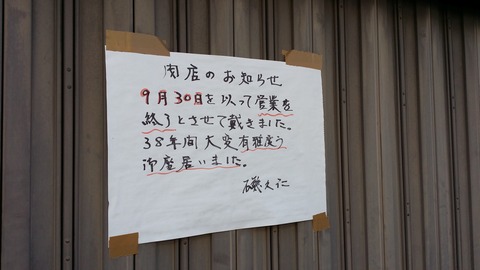 閉店のお知らせ
9月30日を以って営業を
終了とさせて戴きました。
38年間大変有難度う
御座居いました。